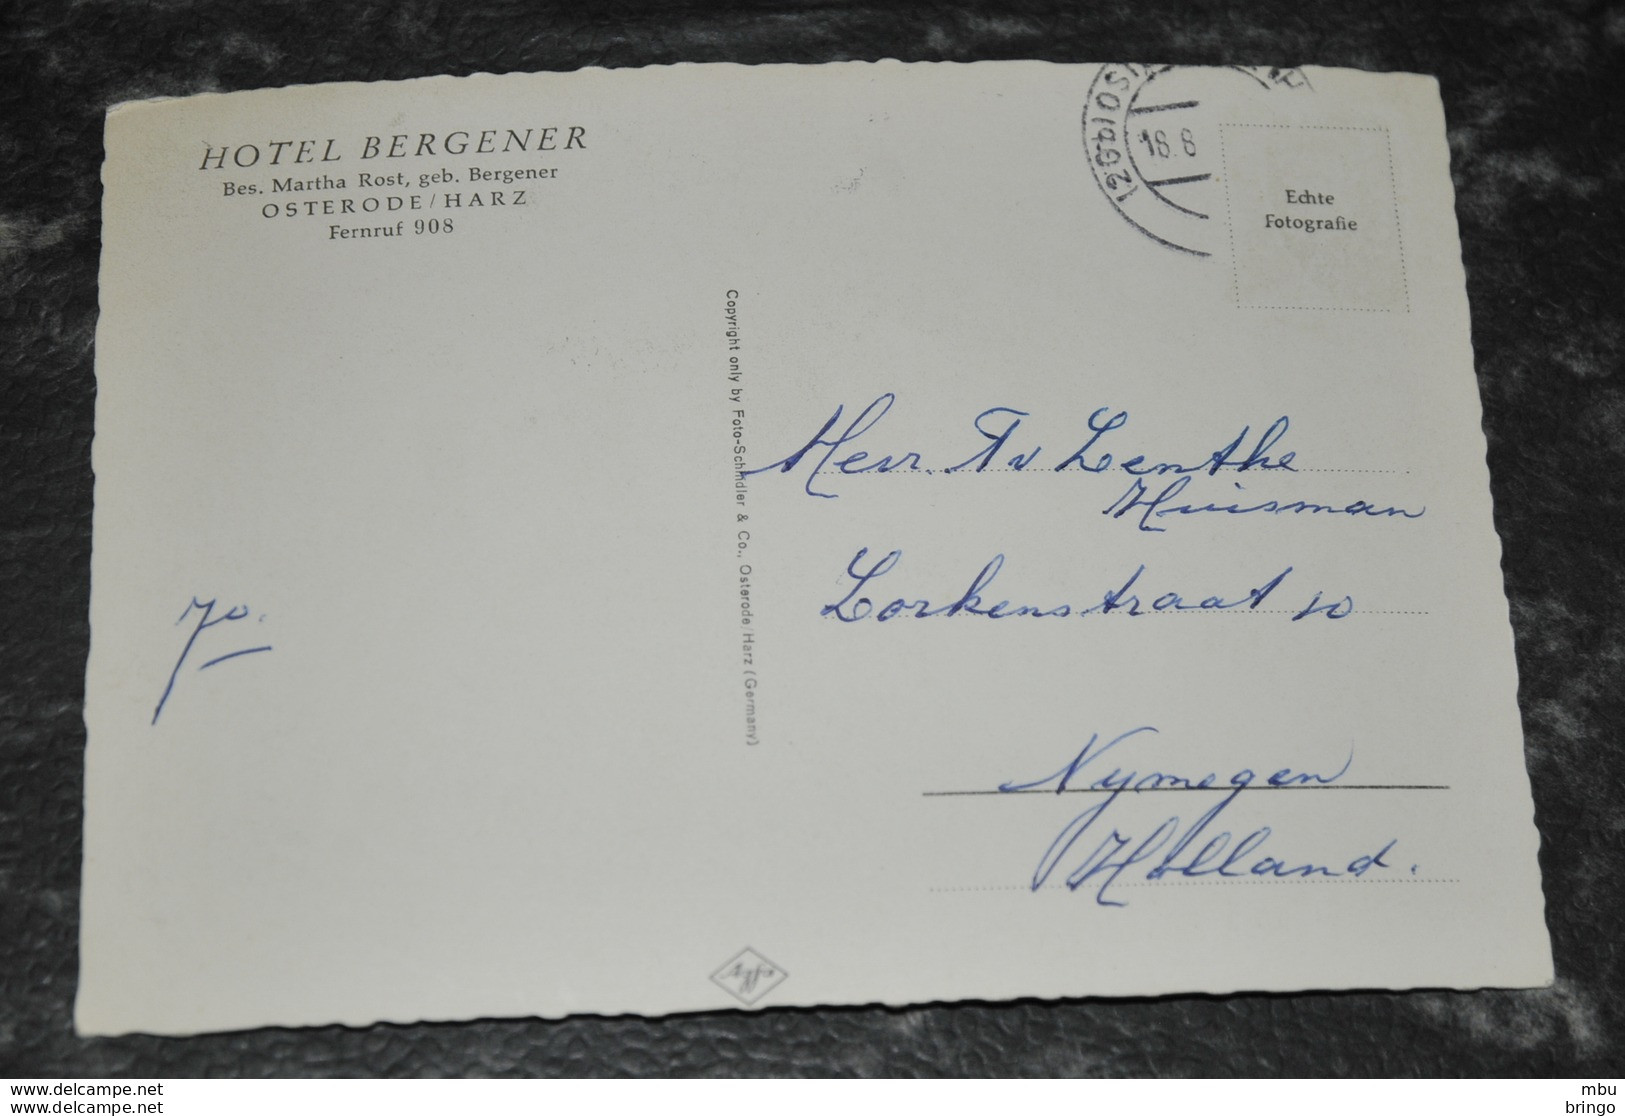 HOTEL BERGENER
Bes. Martha Rost, geb. Bergener
OSTERODE/HARZ
Fernruf 908
18.8
Echte
Fotografie
Copyright only by Foto-Schindler & Co., Osterode/Harz (Germany)
Herr. Tv Lenthe
Huisman
Lorkenstraat 10
Nymegen
Holland.
70.
www.delcampe.net
www.delcampe.net
mbu
bringo